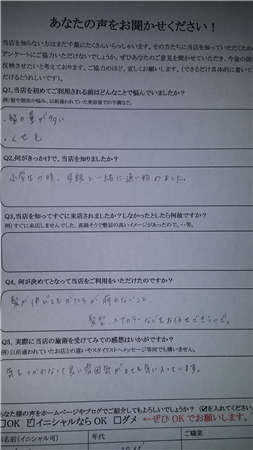 あなたの声をお聞かせください！
当店を知らない方はまだ千葉にたくさんいらっしゃいます。その方たちに当店を知っていただくため
アンケートにご協力いただけないでしょうか。ぜひあなたのご意見を聞かせていただき、今後の
反映させたいと考えております。ご協力のほど、宜しくお願いします。（できるだけ具体的に書いて
だけるとうれしいです）。
Q1,当店を初めてご利用される前はどんなことで悩んでいましたか？
例）髪や頭皮の悩み、以前通われていた美容室での不満など。
・髪の量が多い
・くせ毛
Q2,何がきっかけで、当店を知りましたか？
小学生の時、母親と一緒に通い始めました。
Q3,当店を知ってすぐに来店されましたか？しなかったとしたら何故ですか？
例）すぐに来店しませんでした、高級そうで敷居の高いイメージがあったので、・・等。
Q4,何が決めてとなって当店をご利用をいただけたのですか？
髪が伸びてもかたちが崩れないこと、
髪型、ヘアカラーなどもお任せできるので。
Q5,実際に当店の施術を受けてみての感想はいかがですか？
例）以前通われていたお店との違いやスタイリストへメッセージ等何でも構いません。
気をつかわなくて良い雰囲気がとても気に入っています。
あなた様の声をホームページやブログでご紹介してもよろしいでしょうか？（☑を入れてください。
□OK ☑イニシャルならOK □ダメ ←ぜひOKでお願いします。
お名前(イニシャル可) 年代 ご職業